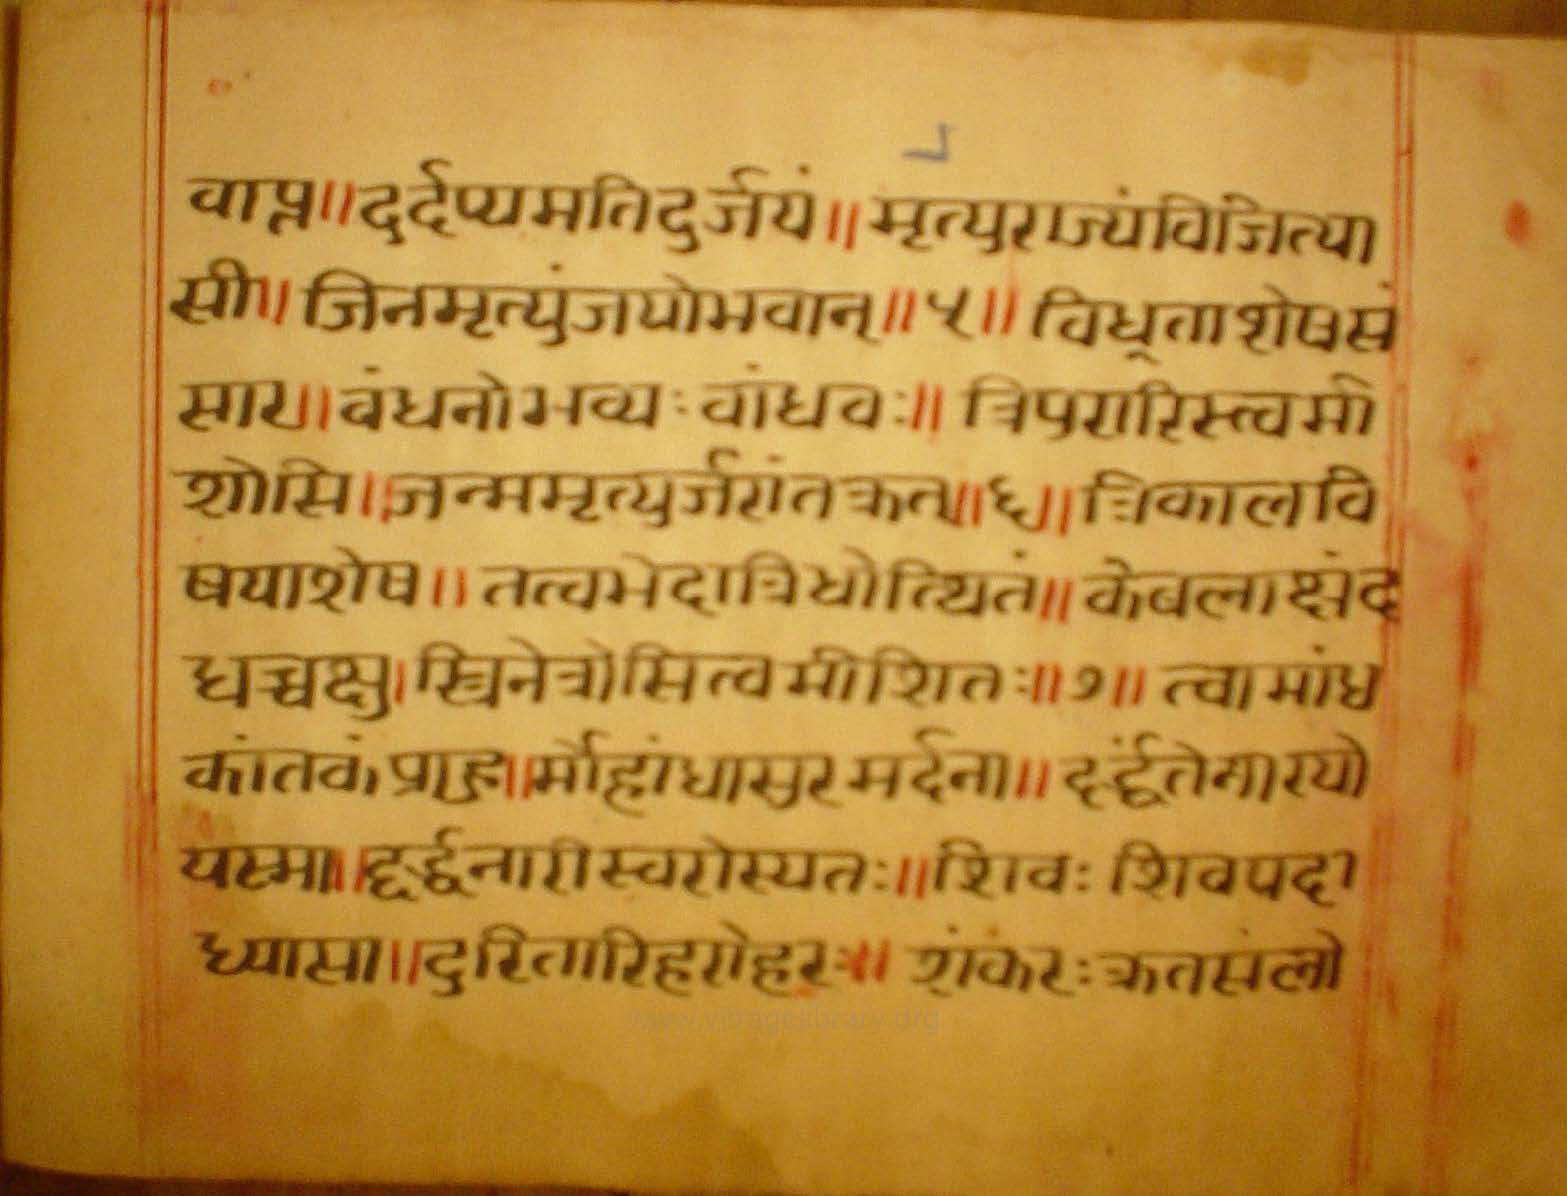 वाप्न॥दुर्दप्यमतिदुर्जयं॥मृत्युराज्यंविजित्या
सी॥जिनमृत्युंजयोभवान्॥५॥विधूताशेषसं
सार॥वंधनोभव्यःवांधवः॥त्रिपुरारिस्त्वमी
शोसि॥जन्ममृत्युर्जरांतक्रत्॥६॥त्रिकालवि
षयाशेष॥तत्वभेदात्रिधोत्थितं॥केवलाक्षंद
धच्चक्षु।स्त्रिनेत्रोसित्वमीशितः॥७॥त्वामांध
कांतकंप्राहु॥र्मोहांधासुरमर्दना॥र्द्धंतेनारयो
यस्मा॥दर्द्धनारीस्वरोस्यतः॥शिवः शिवपदा
ध्यासा॥दुरितारिहरोहरः॥शंकरःक्रतसंलो
www.vitragvani.org